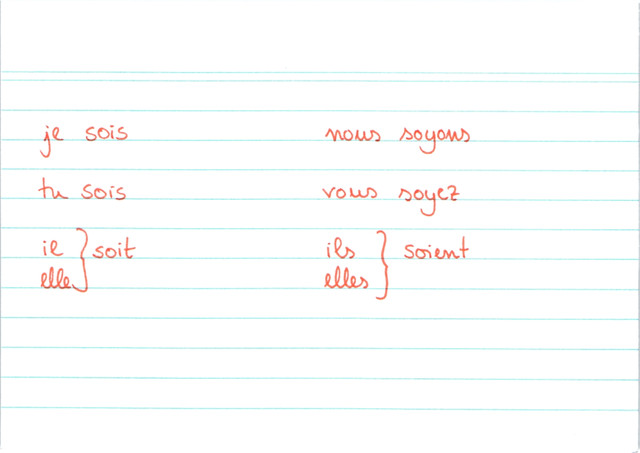 je sois nous soyons
tu sois vous soyez
il } soit ils } soient
elle elles